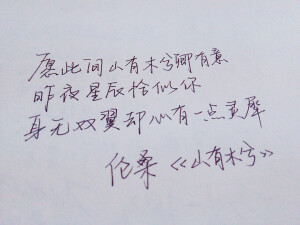 愿此间山有木兮卿有意
昨夜星辰恰似你
身无双翼却心有一点灵犀
伦桑《山有木兮》